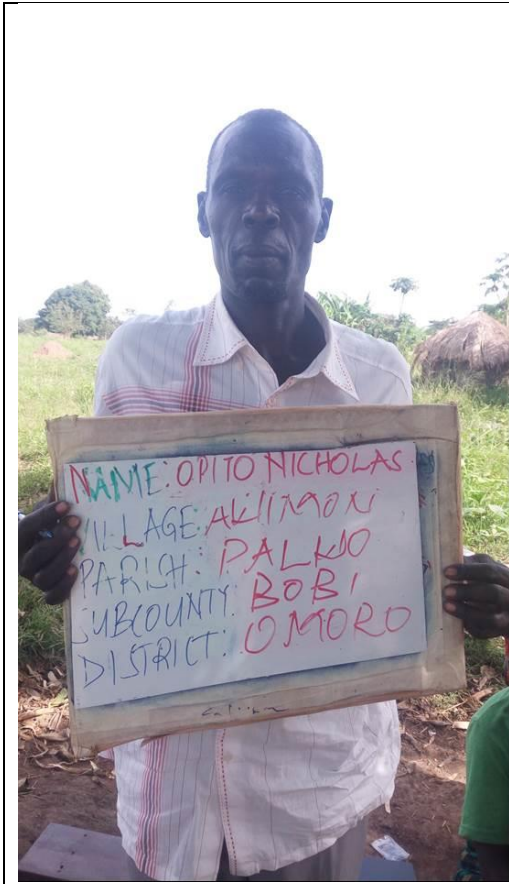 NAME: OPITO NICHOLAS
VILLAGE: AKIIMON
PARISH: PALWO
SUBCOUNTY: BOBI
DISTRICT: OMORO